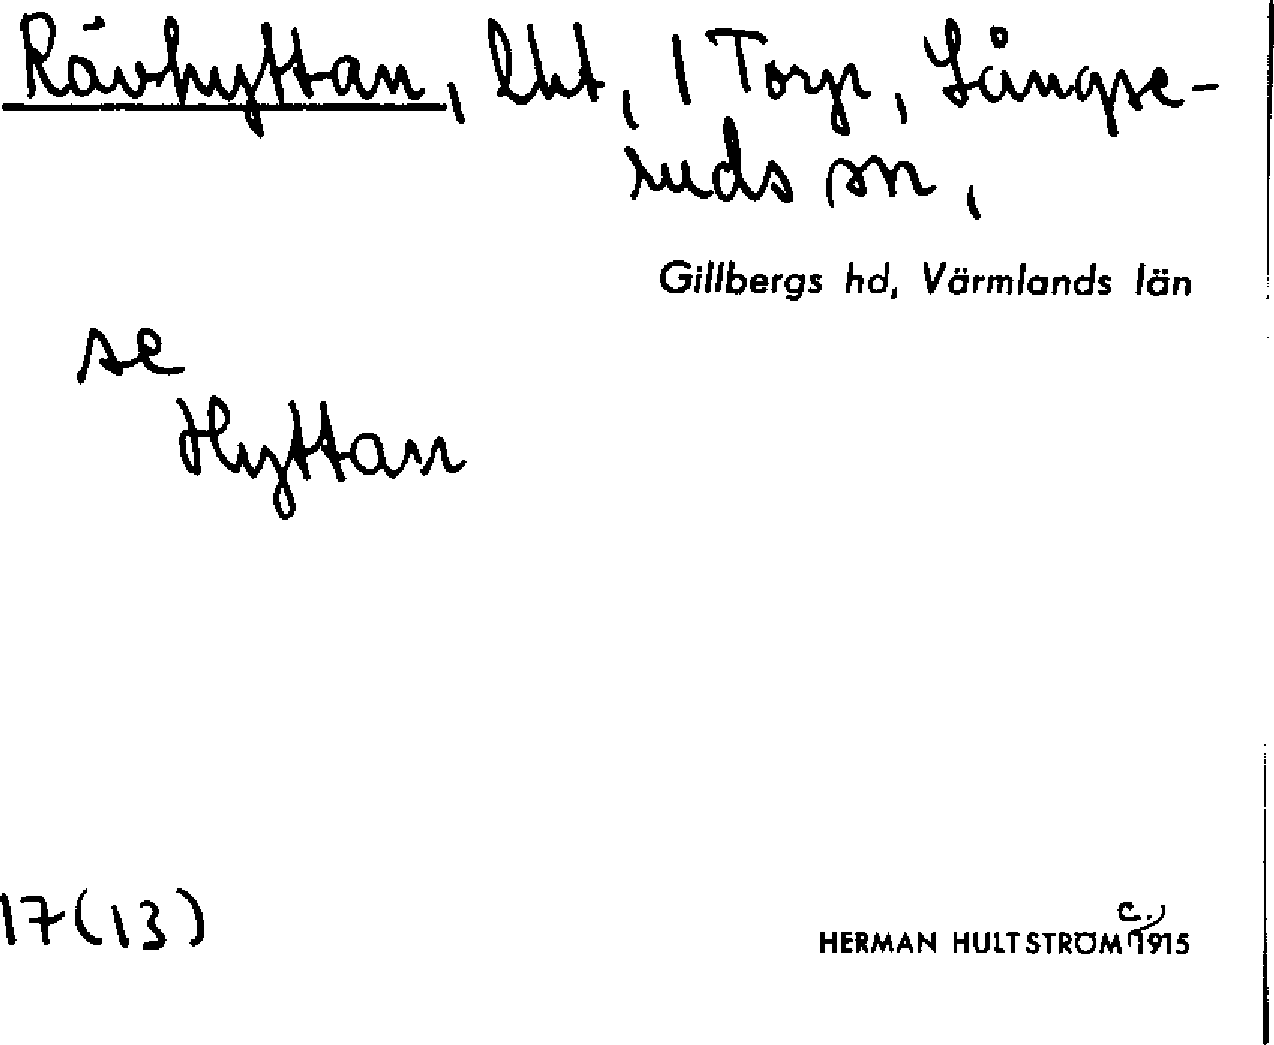 Rävhyttan, lht, 1 Torp, Långse-
ruds sn,
Gillbergs hd, Värmlands län
se
Hyttan
17(13)
HERMAN HULTSTRÖM c. 1915